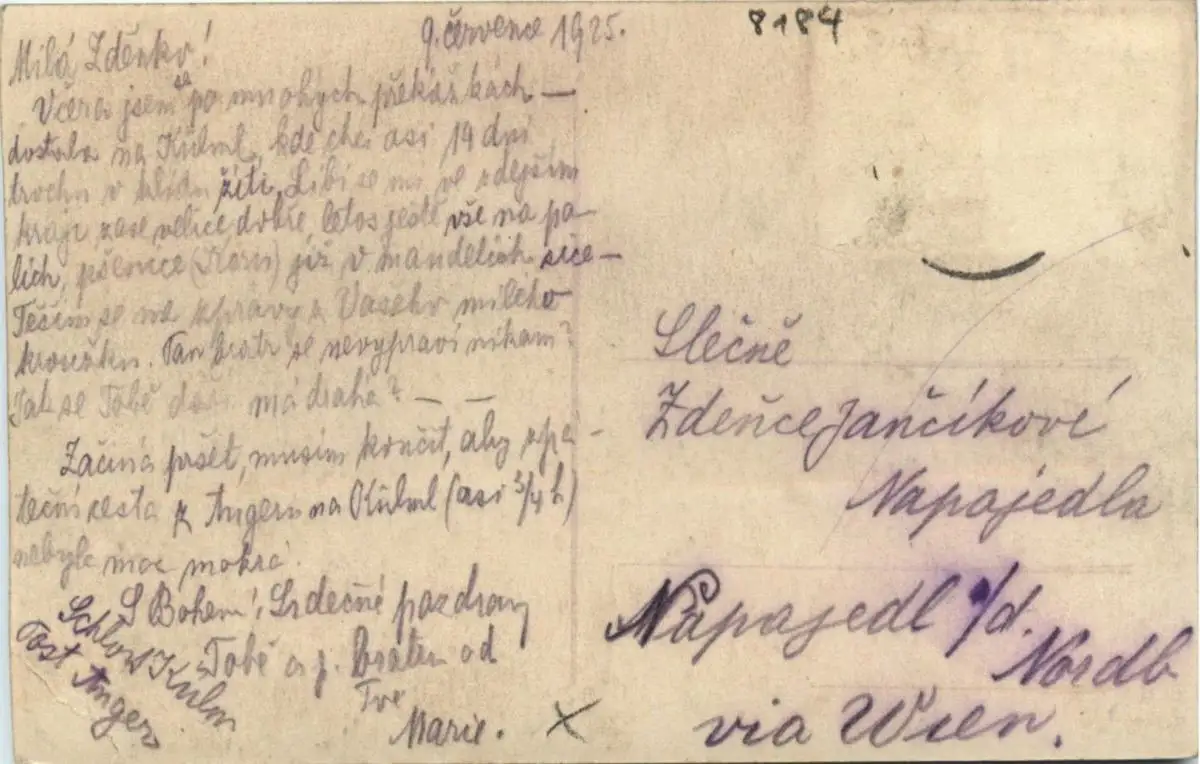 8184
9. července 1925.
Milá Zdenko!
Včera jsem se po mnohých překážkách –
dostala na Külml, kde chci asi 14 dní
trochu v klidu žíti. Líbí se mi ve zdejším
kraji zase velice dobře, letos ještě vše na po-
lích, pšenice (Korn) již v mandelích sice –
Těším se na zprávy z Vašeho milého
kroužku. Pan bratr se nevypraví nikam?
Jak se Tobě daří má drahá? – –
Začíná pršet, musím končit, aby zpá-
teční cesta z Angeru na Külml (asi 3/4 h)
nebyla moc mokrá.
S Bohem! Srdečné pozdravy
Tobě a p. bratru od
Tvé
Marie.
Schloss Külml
Post Anger
Slečně
Zdeňce Jančíkové
Napajedla
Napajedl a/d.
Nordb
via Wien.